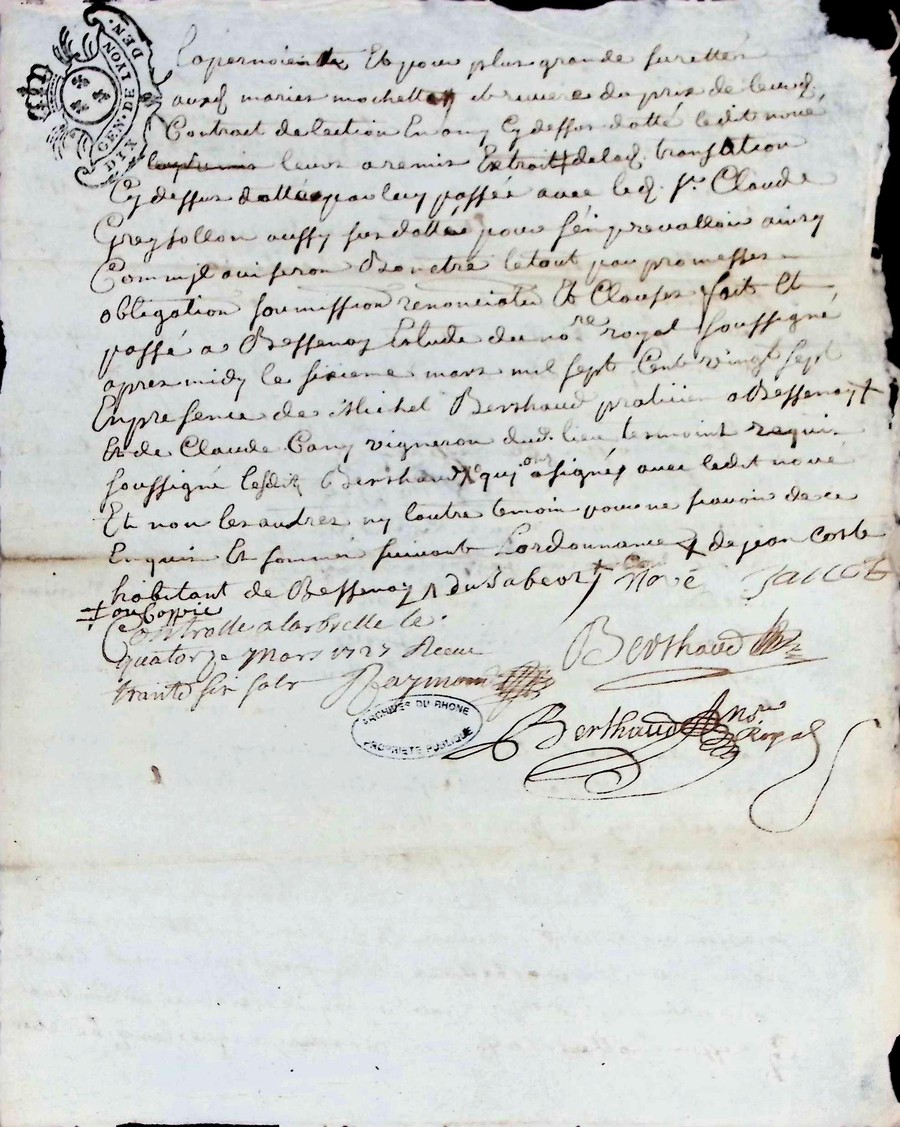 GEN. DE LYON
DIX DEN.
Et pour plus grande suretté
auxd. mariés mochette et riviere du prix de leurd.
Contract de laction En Cy dessus datté ledit nové
leurs a remis Extrait de lad. translation
Cy dessus dattée par luy passée avec led. Sr. Claude
Greysollon aussy susdattée pour sen prevalloir ainsy
Comm jl aviseron le tout par promesses
obligation soummission renonciaton Et Clauses fait Et
passé a Bessenay Estude du nore. royal soussigné
apres midy le sixieme mars mil sept Cent vingt sept
En presence de Michel Berthaud praticien a Bessenay +
Et de Claude Cany vigneron dud. lieu temoint requis
soussigné lesdits Berthaud qui ont signés avec ledit nové
Et non les autres ny lautre temoin pour ne scavoir de ce
Enquis Et sommé suivant Lordonnance + de jean Coste
habitant de Bessenay
+ ou Coppie
Nové
Berthaud
Controllé a larbrelle le
quatorze Mars 1727 Receu
trante six sols Raymond
ARCHIVES DU RHONE
PROPRIETE PUBLIQUE
Berthaud nore
Royal